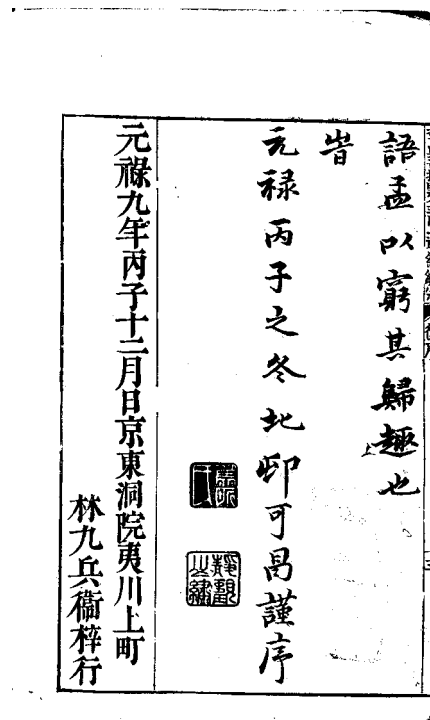 語孟以窮其歸趣也
旹
元禄丙子之冬北邨可昌謹序
元祿九年丙子十二月日京東洞院夷川上町
林九兵衞梓行